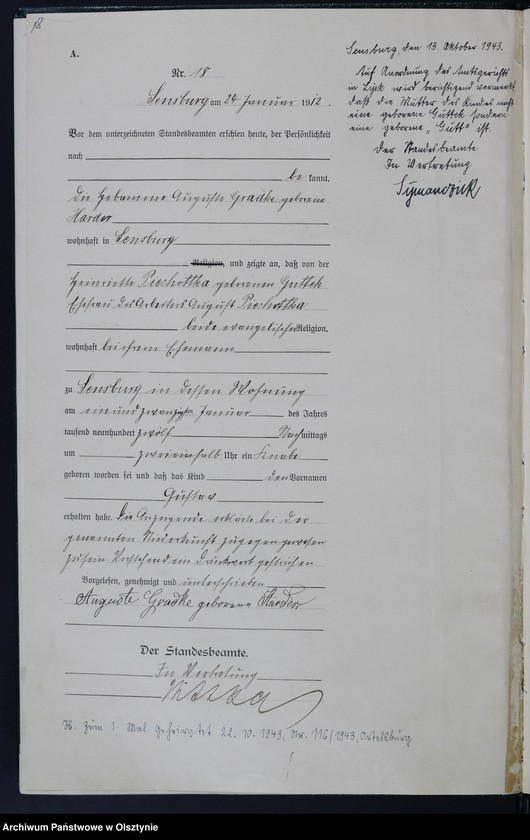 18
A.
Nr. 18
Sensburg am 24 Januar 1912.
Vor dem unterzeichneten Standesbeamten erschien heute, der Persönlichkeit
nach
be kannt,
die Hebamme Auguste Gradke geborene
Harder
wohnhaft in Sensburg
Religion, und zeigte an, daß von der
Henriette Piechottka geborenen Guttek
Ehefrau des Arbeiters August Piechottka
beide evangelischer Religion,
wohnhaft bei ihrem Ehemann
zu Sensburg in dessen Wohnung
am einundzwanzigsten Januar des Jahres
tausend neunhundert zwölf Nachmittags
um zweieinhalb Uhr ein Knabe
geboren worden sei und daß das Kind den Vornamen
Gustav
erhalten habe. Die Anzeigende erklärte bei der
genannten Niederkunft zugegen gewesen
zu sein Vorstehend ein Druckwort gestrichen
Vorgelesen, genehmigt und unterschrieben
Auguste Gradke geborene Harder
Der Standesbeamte.
In Vertretung
Sensburg, den 13. Oktober 1943.
Auf Anordnung des Amtsgerichts
in Lyck wird berichtigend vermerkt,
daß die Mutter des Kindes nicht
eine geborene Guttek sondern
eine geborene „Gutt" ist.
Der Standesbeamte
In Vertretung
Symanczick
H. Zum 1. Mal geheiratet 22. 10. 1943, Nr. 116/1943, Ortelsburg
Archiwum Państwowe w Olsztynie